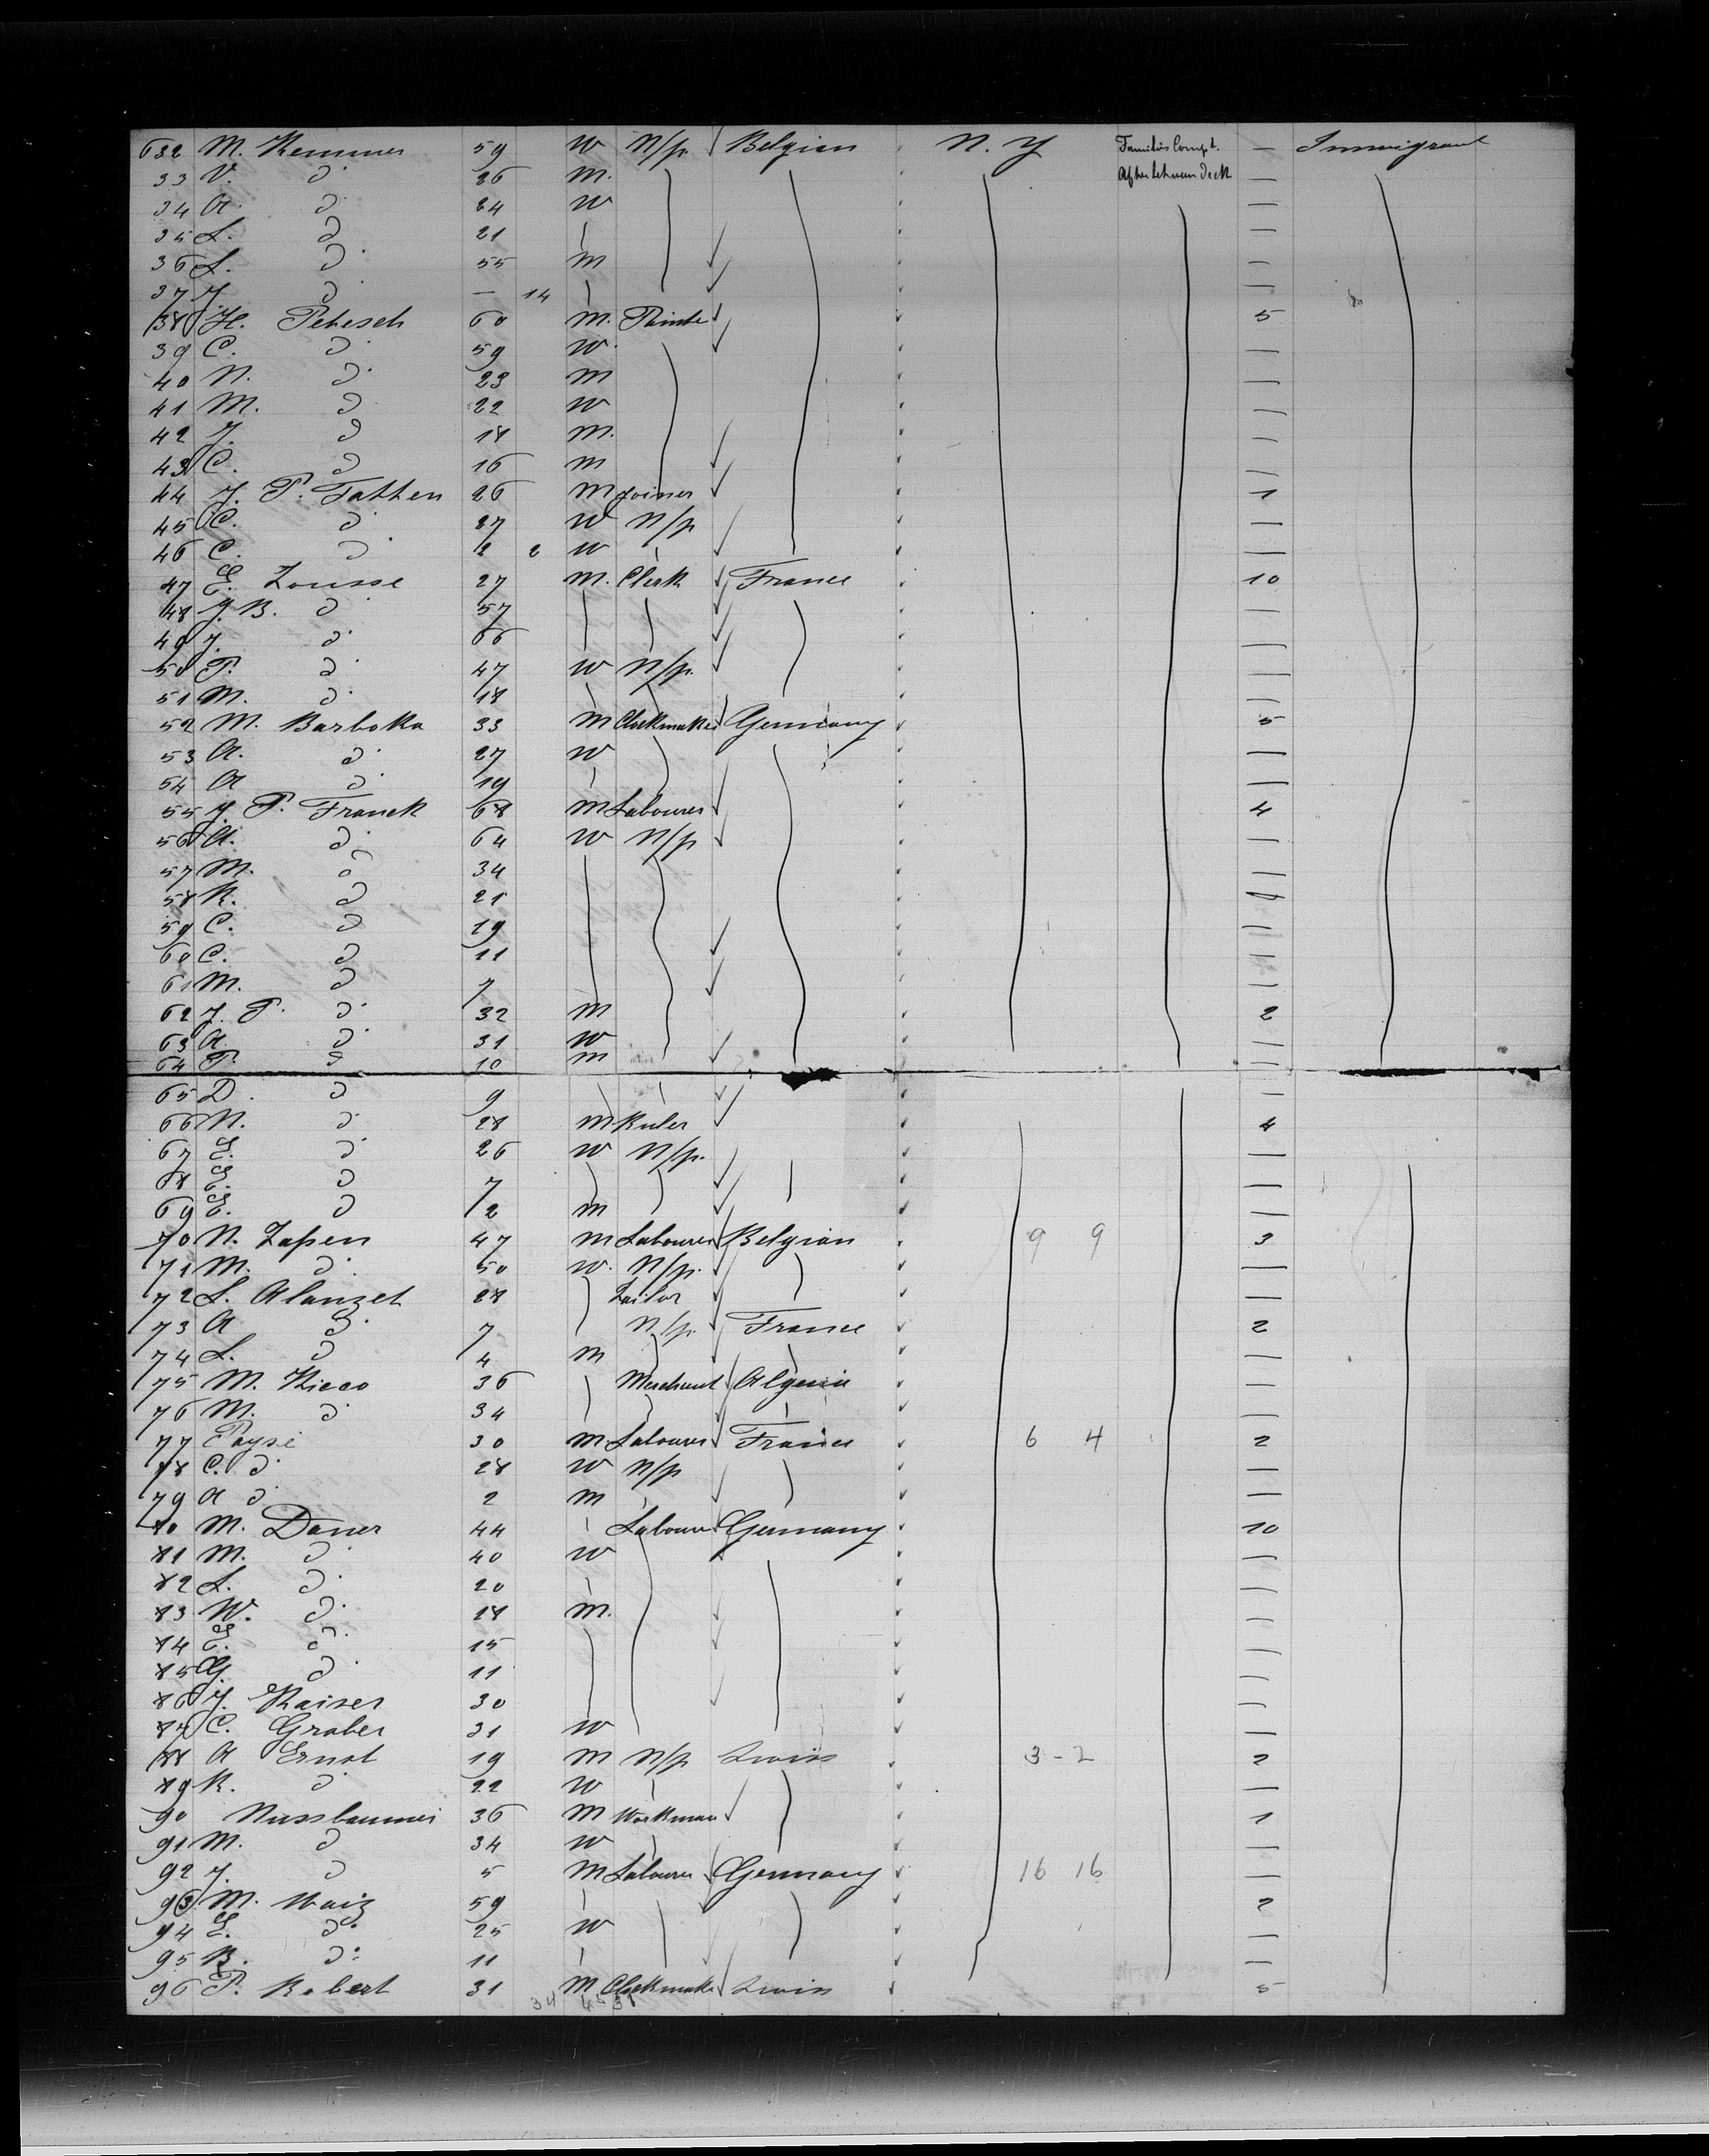 632 M. Kemmer 59 W N/p Belgien N. Y Families Compt. — Immigrant
33 V. do 26 M. After between Deck —
34 A. do 24 W —
35 L. do 21 —
36 L. do 55 M —
37 J. do — 14 —
38 H. Petesch 60 M. 5
39 C. do 59 W. —
40 N. do 23 M —
41 M. do 22 W —
42 J. do 18 M. —
43 C. do 16 M —
44 J. P. Tatten 26 M Joiner 1
45 C. do 27 W N/p —
46 C. do 2 2 W —
47 E. Zousse 27 M. Clerk France 10
48 J. B. do 57 —
49 J. do 66 —
50 P. do 47 W N/p. —
51 M. do 18 —
52 M. Barboka 33 M Clockmaker Germany 5
53 A. do 27 W —
54 A do 19 —
55 J. P. Franck 68 M Labourer 4
56 A. do 64 W N/p —
57 M. do 34 —
58 K. do 21 —
59 C. do 19 —
60 C. do 11 —
61 M. do 7 —
62 J. P. do 32 M 2
63 A. do 31 W —
64 P. do 10 M —
65 D. do 9 —
66 N. do 28 M Ruler 4
67 E. do 26 W N/p. —
68 E. do 7 —
69 E. do 2 M —
70 N. Zapen 47 M Labourer Belgian 9 9 3
71 M. do 50 W. N/p. —
72 L. Alanzet 28 Tailor —
73 A do 7 N/p. France 2
74 L. do 4 M —
75 M. Kieco 36 Merchant Algeria —
76 M. do 34 —
77 Paysé 30 M. Labourer France 6 4 2
78 C. do 28 W N/p —
79 A do 2 M —
80 M. Daner 44 Labourer Germany 10
81 M. do 40 W —
82 L. do 20 —
83 W. do 18 M. —
84 E. do 15 —
85 G. do 11 —
86 J. Kaiser 30 —
87 C. Graber 31 W —
88 A Ernst 19 M N/p Swiss 3 - 2 2
89 K. do 22 W —
90 Nussbaumer 36 M Workman 1
91 M. do 34 W —
92 J. do 5 M Labourer Germany 16 16 —
93 M. Waiz 59 2
94 E. do 25 W —
95 B. do 11 —
96 P. Robert 31 M Clockmaker Swiss 5
34